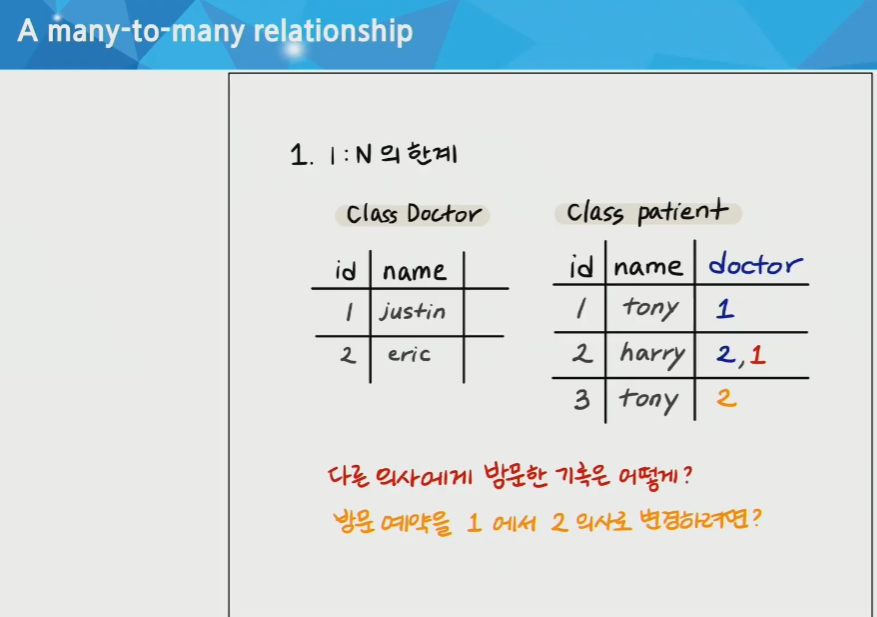 A many-to-many relationship
1. 1:N의 한계
Class Doctor
id name
1 justin
2 eric
Class patient
id name doctor
1 tony 1
2 harry 2,1
3 tony 2
다른 의사에게 방문한 기록은 어떻게?
방문 예약을 1에서 2 의사로 변경하려면?